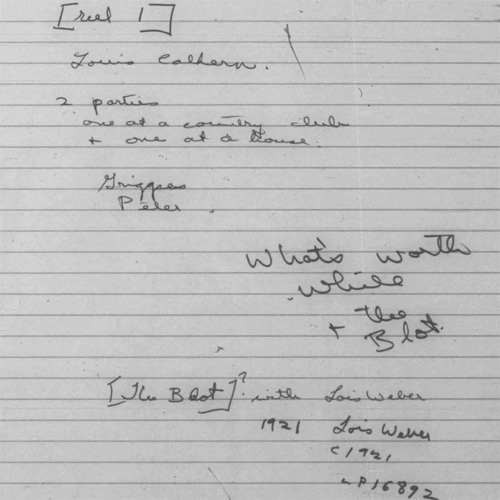 [reel 1]
Louis Calhern.
2 parties
one at a country club
+ one at a house.
Griggses
Peter.
What's worth
while
+ the
Blot.
[The Blot]? with Lois Weber
1921 Lois Weber
c1921
LP16892